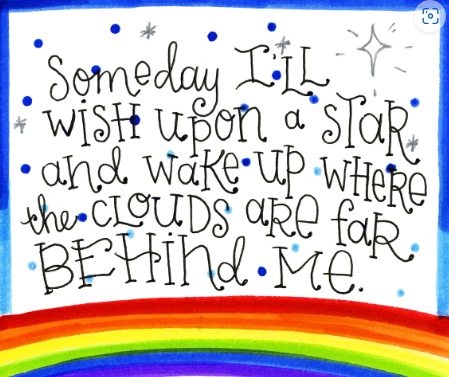 Someday I'LL
WISH upon a STAR
and WAKE UP WHERE
the CLOUDS ARE FAR
BEHInd ME.